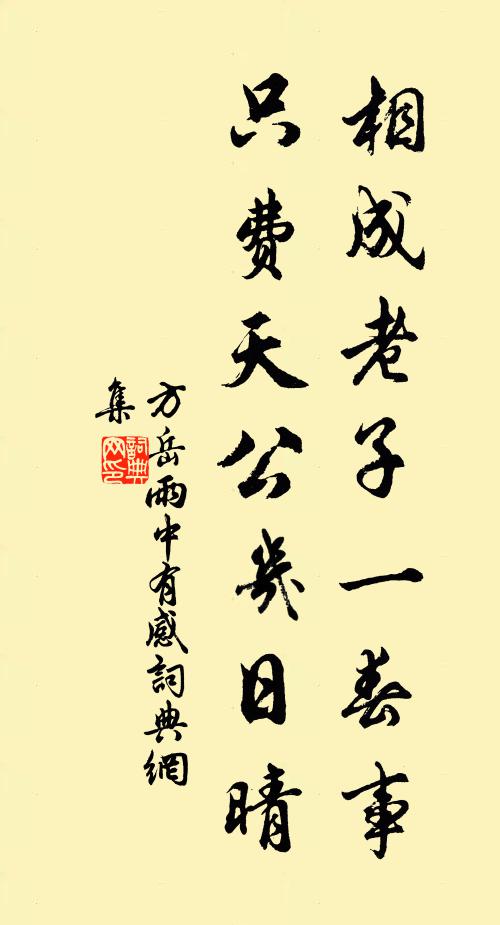 相成老子一春事
只费天公幾日晴
方岳雨中有感詞典網
集
詞典网印